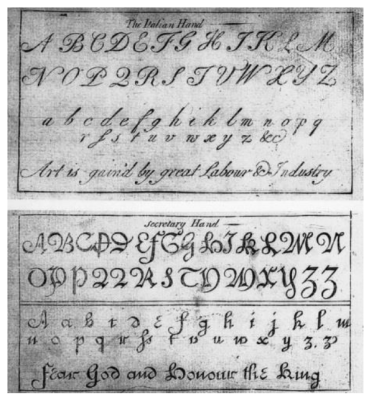 The Italian Hand
A B C D E F G H I K L M
N O P Q R S T V W X Y Z
a b c d e f g h i k l m n o p q
r ſ s t u v w x y z &c
Art is gain'd by great Labour & Industry
Secretary Hand
A B C D D E F G H I K L M N
O P P Q Q R S T V W X Y Z Z
A a b c d e f g h i j k l m
n o p q r ſ s t v u w x y z z
Fear God and Honour the King